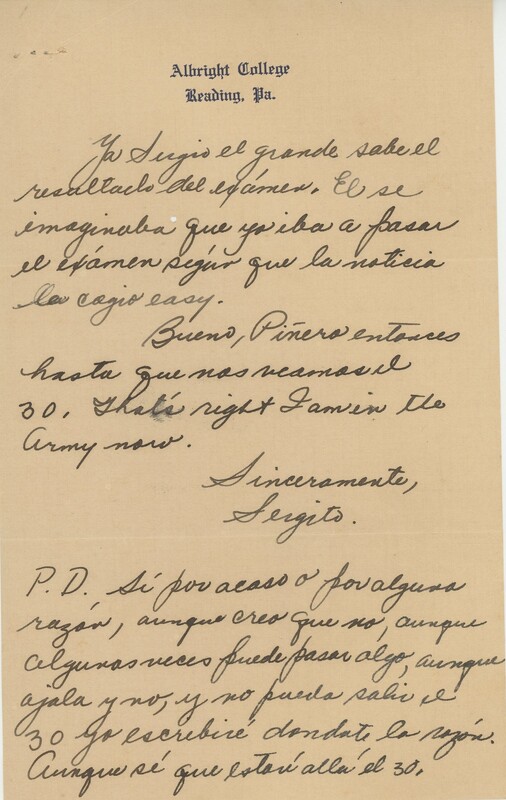 Albright College
Reading, Pa.
Ya Sergio el grande sabe el
resultado del exámen. El se
imaginaba que yo iba a pasar
el exámen según que la noticia
la cogio easy.
Bueno, Piñero entonces
hasta que nos veamos el
30. That's right I am in the
Army now.
Sinceramente,
Sergito.
P.D. Sí por acaso o por alguna
razón, aunque creo que no, aunque
algunas veces puede pasar algo, aunque
ojala y no, y no pueda salir el
30 yo escribiré dondote la razón.
Aunque sé que estaré allá el 30.